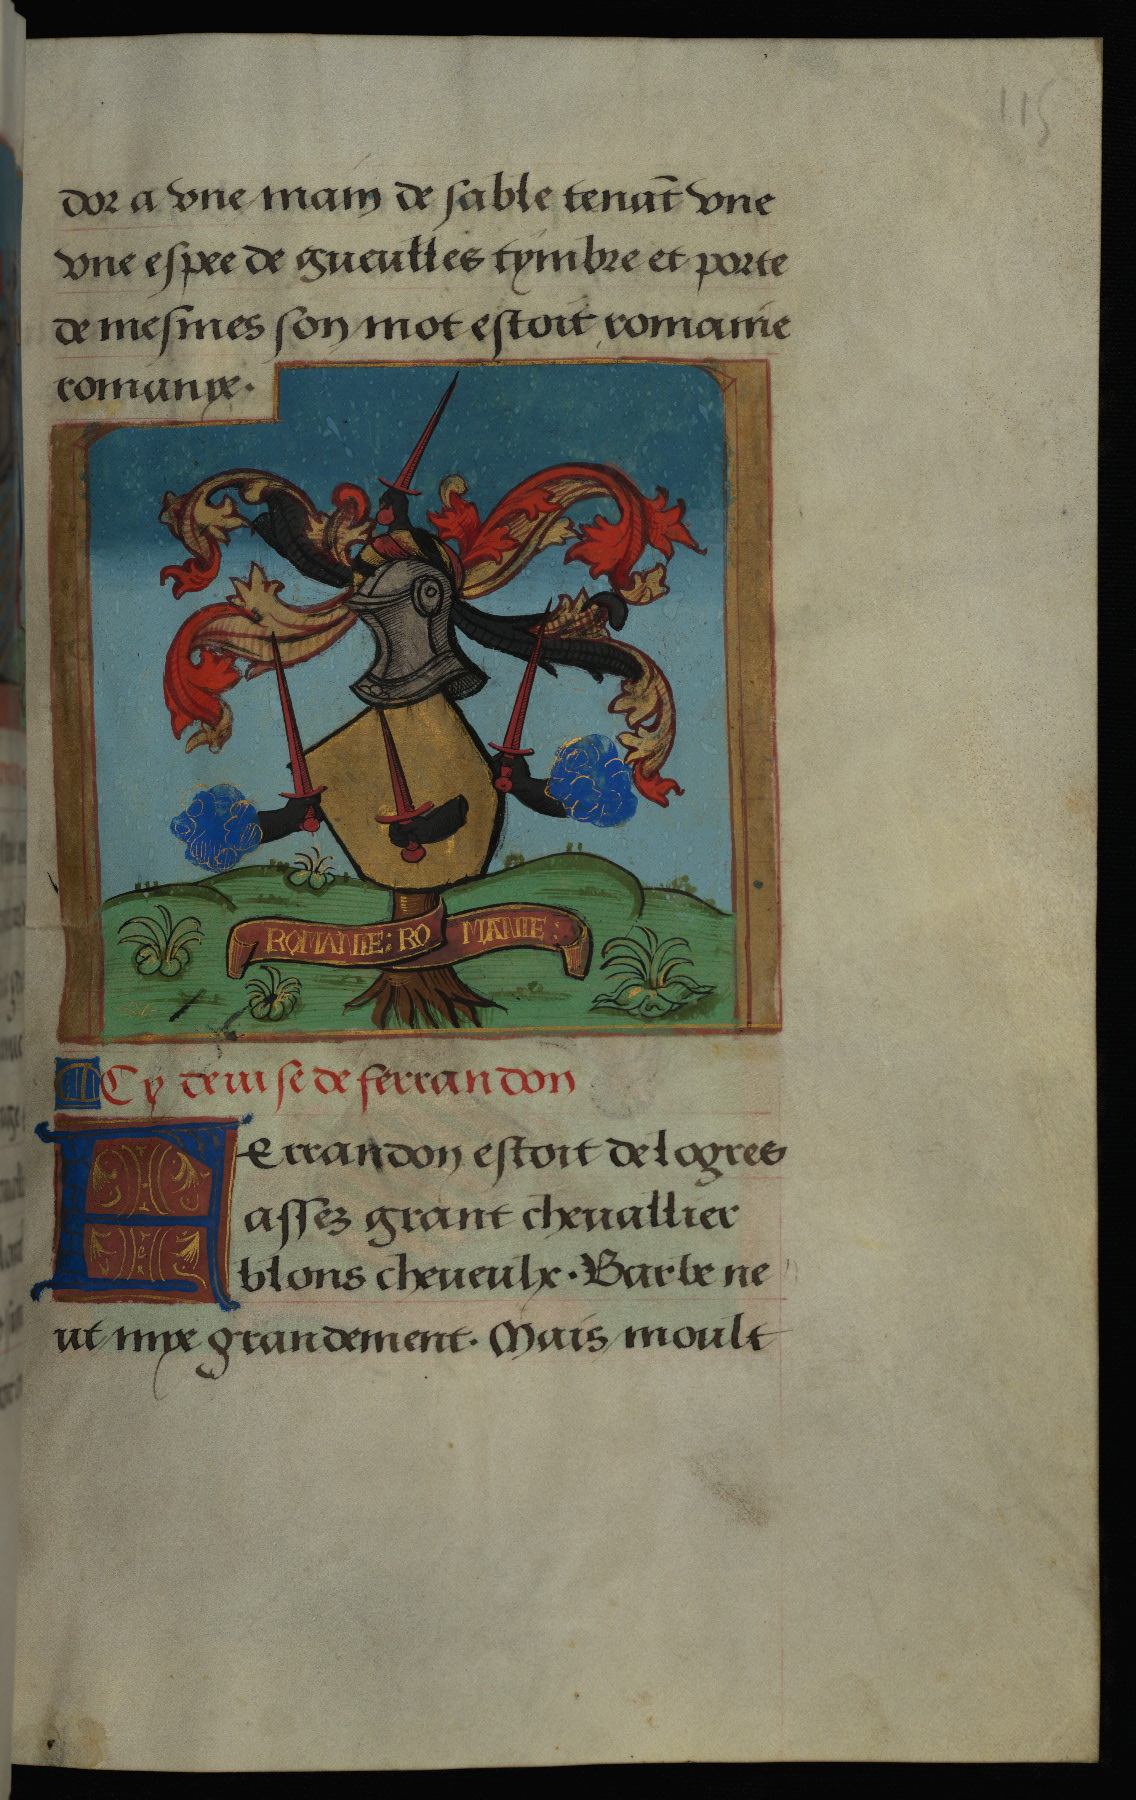 115
dor a vne main de sable tenāt vne
vne espee de gueulles tymbre et porte
de mesmes son mot estoit romanie
romanye.
ROMANIE: RO MANIE:
Cy deuise de ferrandon
Ferrandon estoit de logres
assez grant cheuallier
blons cheueulx. Barbe ne
ut mye grandement. Mais moult